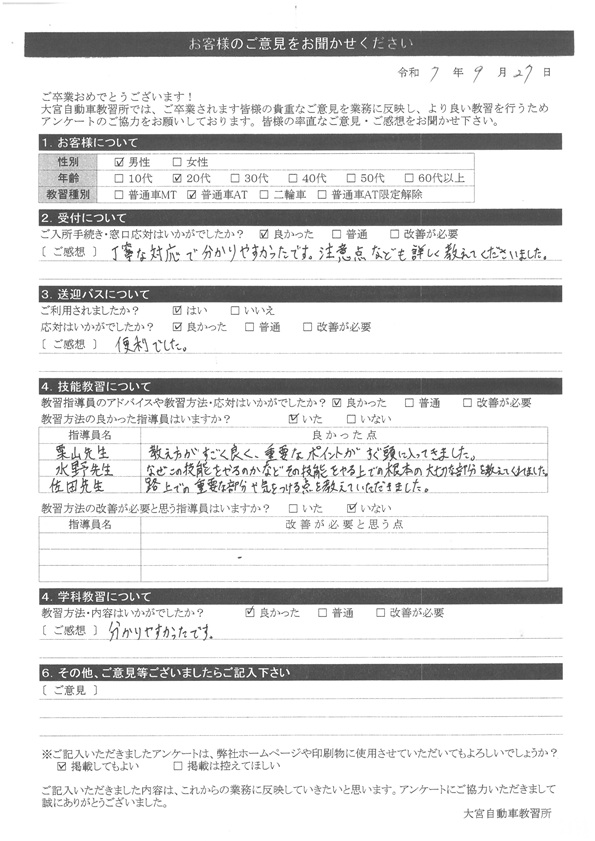 お客様のご意見をお聞かせください
令和 7 年 9 月 27 日
ご卒業おめでとうございます！
大宮自動車教習所では、ご卒業されます皆様の貴重なご意見を業務に反映し、より良い教習を行うため
アンケートのご協力をお願いしております。皆様の率直なご意見・ご感想をお聞かせ下さい。
1. お客様について
性別 ☑ 男性 □ 女性
年齢 □ 10代 ☑ 20代 □ 30代 □ 40代 □ 50代 □ 60代以上
教習種別 □ 普通車MT ☑ 普通車AT □ 二輪車 □ 普通車AT限定解除
2. 受付について
ご入所手続き・窓口応対はいかがでしたか？ ☑ 良かった □ 普通 □ 改善が必要
〔 ご感想 〕 丁寧な対応で分かりやすかったです。注意点なども詳しく教えてくださいました。
3. 送迎バスについて
ご利用されましたか？ ☑ はい □ いいえ
応対はいかがでしたか？ ☑ 良かった □ 普通 □ 改善が必要
〔 ご感想 〕 便利でした。
4. 技能教習について
教習指導員のアドバイスや教習方法・応対はいかがでしたか？ ☑ 良かった □ 普通 □ 改善が必要
教習方法の良かった指導員はいますか？ ☑ いた □ いない
指導員名 良かった点
栗山先生 教え方がすごく良く、重要なポイントがすぐ頭に入ってきました。
水野先生 なぜこの技能をやるのかなどその技能をやる上での根本の大切な部分を教えてくれました。
佐田先生 路上での重要な部分や気をつける点を教えていただきました。
教習方法の改善が必要と思う指導員はいますか？ □ いた ☑ いない
指導員名 改善が必要と思う点
4. 学科教習について
教習方法・内容はいかがでしたか？ ☑ 良かった □ 普通 □ 改善が必要
〔 ご感想 〕 分かりやすかったです。
6. その他、ご意見等ございましたらご記入下さい
〔 ご意見 〕
※ご記入いただきましたアンケートは、弊社ホームページや印刷物に使用させていただいてもよろしいでしょうか？
☑ 掲載してもよい □ 掲載は控えてほしい
ご記入いただきました内容は、これからの業務に反映していきたいと思います。アンケートにご協力いただきまして
誠にありがとうございました。
大宮自動車教習所